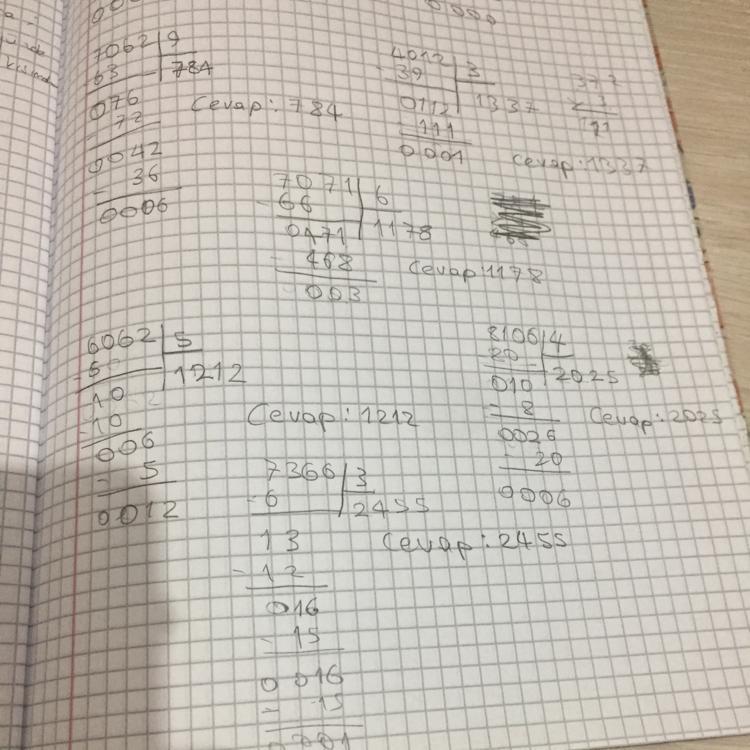 7062 9
63 784
076
- 72
0042
- 36
0006
Cevap: 784
4012 3
- 39 1337
0112
- 111
0001
Cevap: 1337
7071 6
- 66 1178
0471
- 468
003
Cevap: 1178
6062 5
- 5 1212
10
- 10
006
- 5
0012
Cevap: 1212
8106 4
20 2025
010
- 8
0026
- 20
0006
Cevap: 2025
7366 3
- 6 2455
13
- 12
016
- 15
0016
- 15
0001
Cevap: 2455